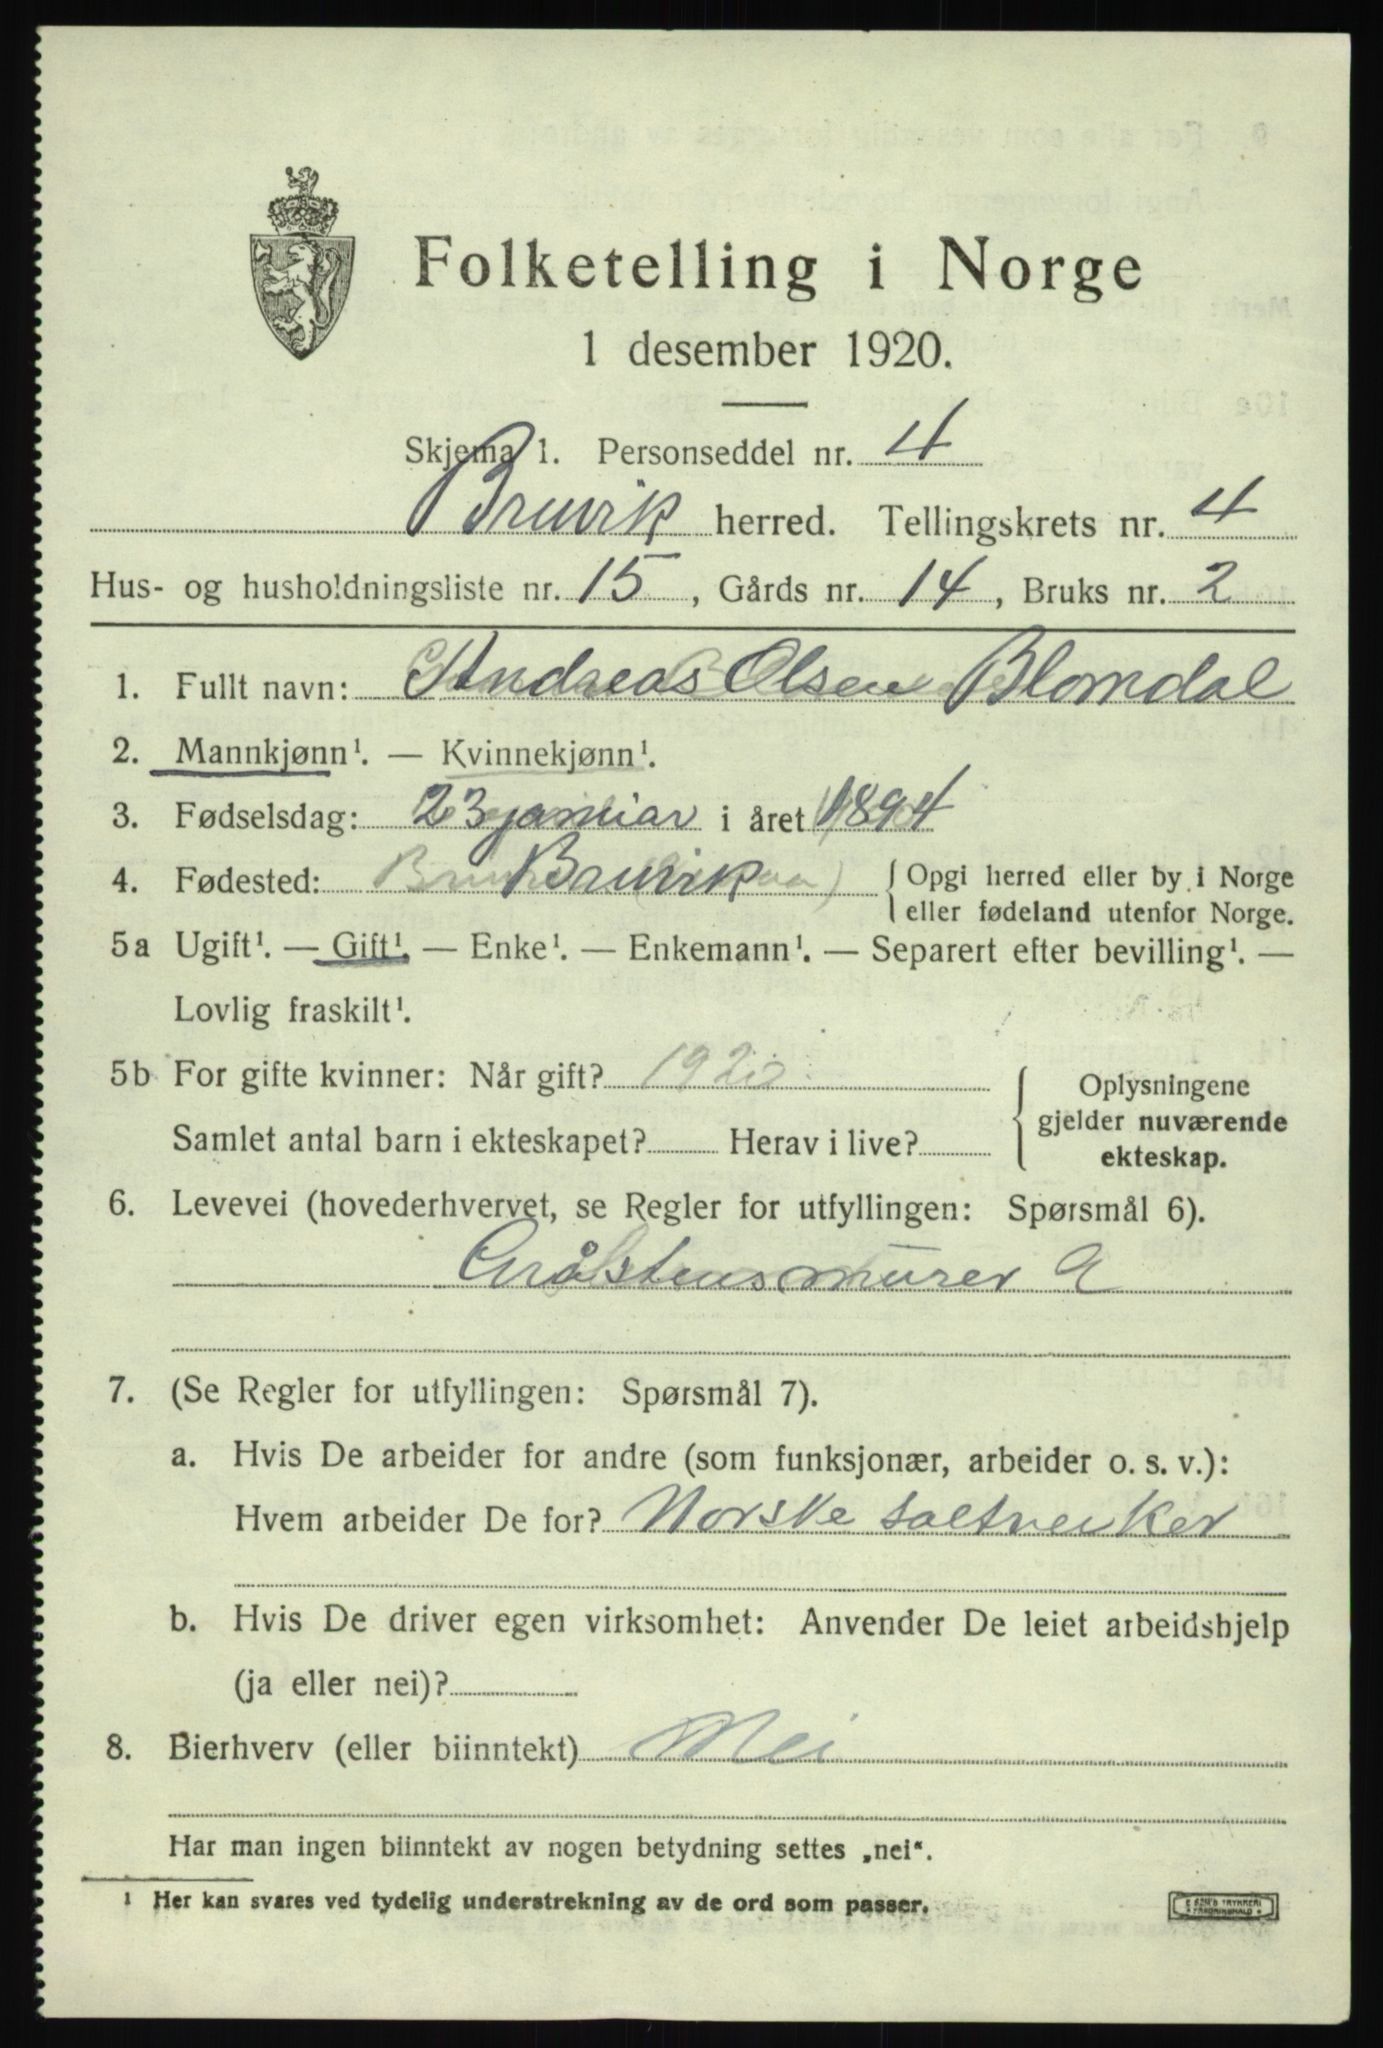 Folketelling i Norge
1 desember 1920.
Skjema 1. Personseddel nr. 4
Bruvik herred. Tellingskrets nr. 4
Hus- og husholdningsliste nr. 15, Gårds nr. 14, Bruks nr. 2
1. Fullt navn: Andreas Olsen Blomdal
2. Mannkjønn¹. — Kvinnekjønn¹.
3. Fødselsdag: 23 januar i året 1894
4. Fødested: Bruvik { Opgi herred eller by i Norge
eller fødeland utenfor Norge.
5a Ugift¹. — Gift¹. — Enke¹. — Enkemann¹. — Separert efter bevilling¹. —
Lovlig fraskilt¹.
5b For gifte kvinner: Når gift? 1920
Samlet antal barn i ekteskapet? Herav i live?
{ Oplysningene
gjelder nuværende
ekteskap.
6. Levevei (hovederhvervet, se Regler for utfyllingen: Spørsmål 6).
Gråstensmurer a
7. (Se Regler for utfyllingen: Spørsmål 7).
a. Hvis De arbeider for andre (som funksjonær, arbeider o. s. v.):
Hvem arbeider De for? Norske saltverker
b. Hvis De driver egen virksomhet: Anvender De leiet arbeidshjelp
(ja eller nei)?
8. Bierhverv (eller biinntekt) Nei
Har man ingen biinntekt av nogen betydning settes „nei“.
¹ Her kan svares ved tydelig understrekning av de ord som passer.